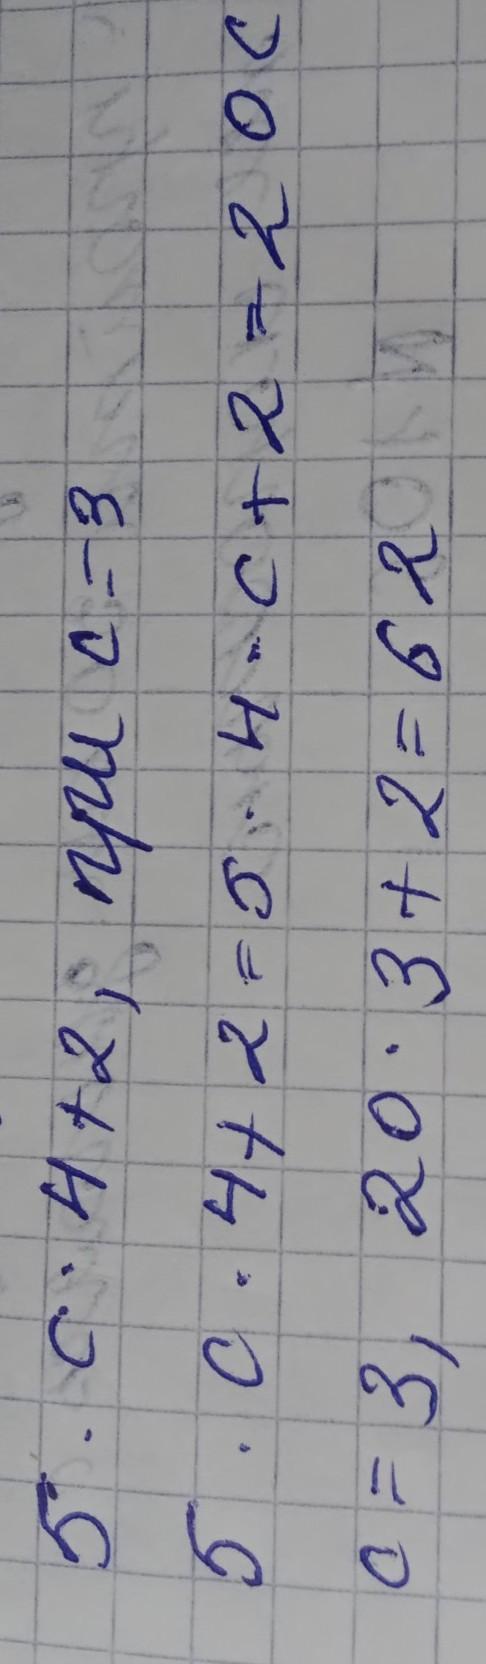 5 · c · 4 + 2, при c = 3
5 · c · 4 + 2 = 5 · 4 · c + 2 = 20c
c = 3, 20 · 3 + 2 = 62